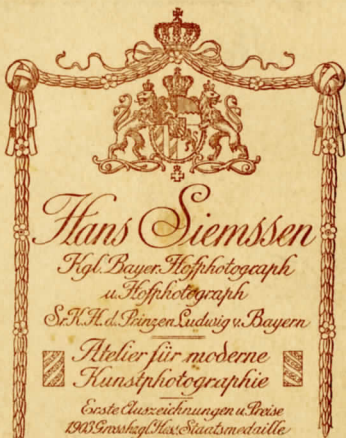 Hans Siemssen
Kgl. Bayer. Hofphotograph
u. Hofphotograph
Sr. K. H. d. Prinzen Ludwig v. Bayern
Atelier für moderne
Kunstphotographie
Erste Auszeichnungen u. Preise
1903 Grosshzgl. Hess. Staatsmedaille